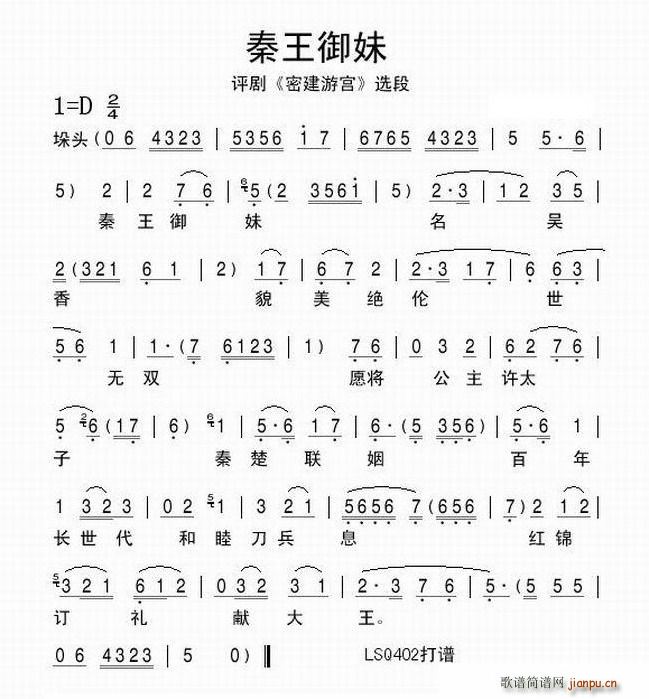 秦王御妹
评剧《密建游宫》选段
1=D 2/4
垛头(0 6 4323 | 5356 1 7 | 6765 4323 | 5 5·6 |
5) 2 | 2 7 6 | 6 5 (2 3561 | 5) 2·3 | 1 2 3 5 |
秦 王 御 妹 名 吴
2 (321 6 1 | 2) 1 7 | 6 7 2 | 2·3 1 7 | 6 6·3 |
香 貌 美 绝 伦 世
5 6 1 | 1·(7 6123 | 1) 7 6 | 0 3 2 | 6 2 7 6 |
无 双 愿将 公 主 许太
5 2 6 (17 | 6) 6 1 | 5·6 1 7 | 6·(5 356) | 5·6 1 |
子 秦 楚 联 姻 百 年
1 323 | 0 2 5 1 | 3 2 1 | 5656 7 (656 | 7) 2 1 2 |
长世代 和 睦 刀兵 息 红锦
5 3 2 1 6 1 2 | 0 3 2 3 1 | 2·3 7 6 | 5·(5 5 5 |
订 礼 献 大 王。
0 6 4323 | 5 0) ‖ LSQ402打谱
歌谱简谱网
jianpu.cn